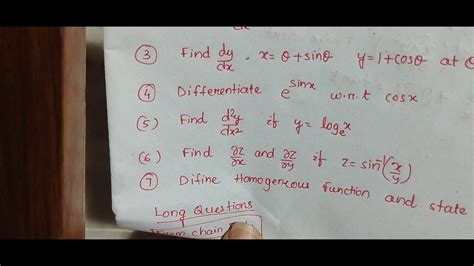 (3) Find dy/dx , x = θ + sinθ y = 1 + cosθ at
(4) Differentiate e^sinx w.r.t cosx
(5) Find d²y/dx² if y = logₑx
(6) Find ∂z/∂x and ∂z/∂y if z = sin⁻¹(x/y)
(7) Difine Homogeneous Function and state
Long Questions
chain